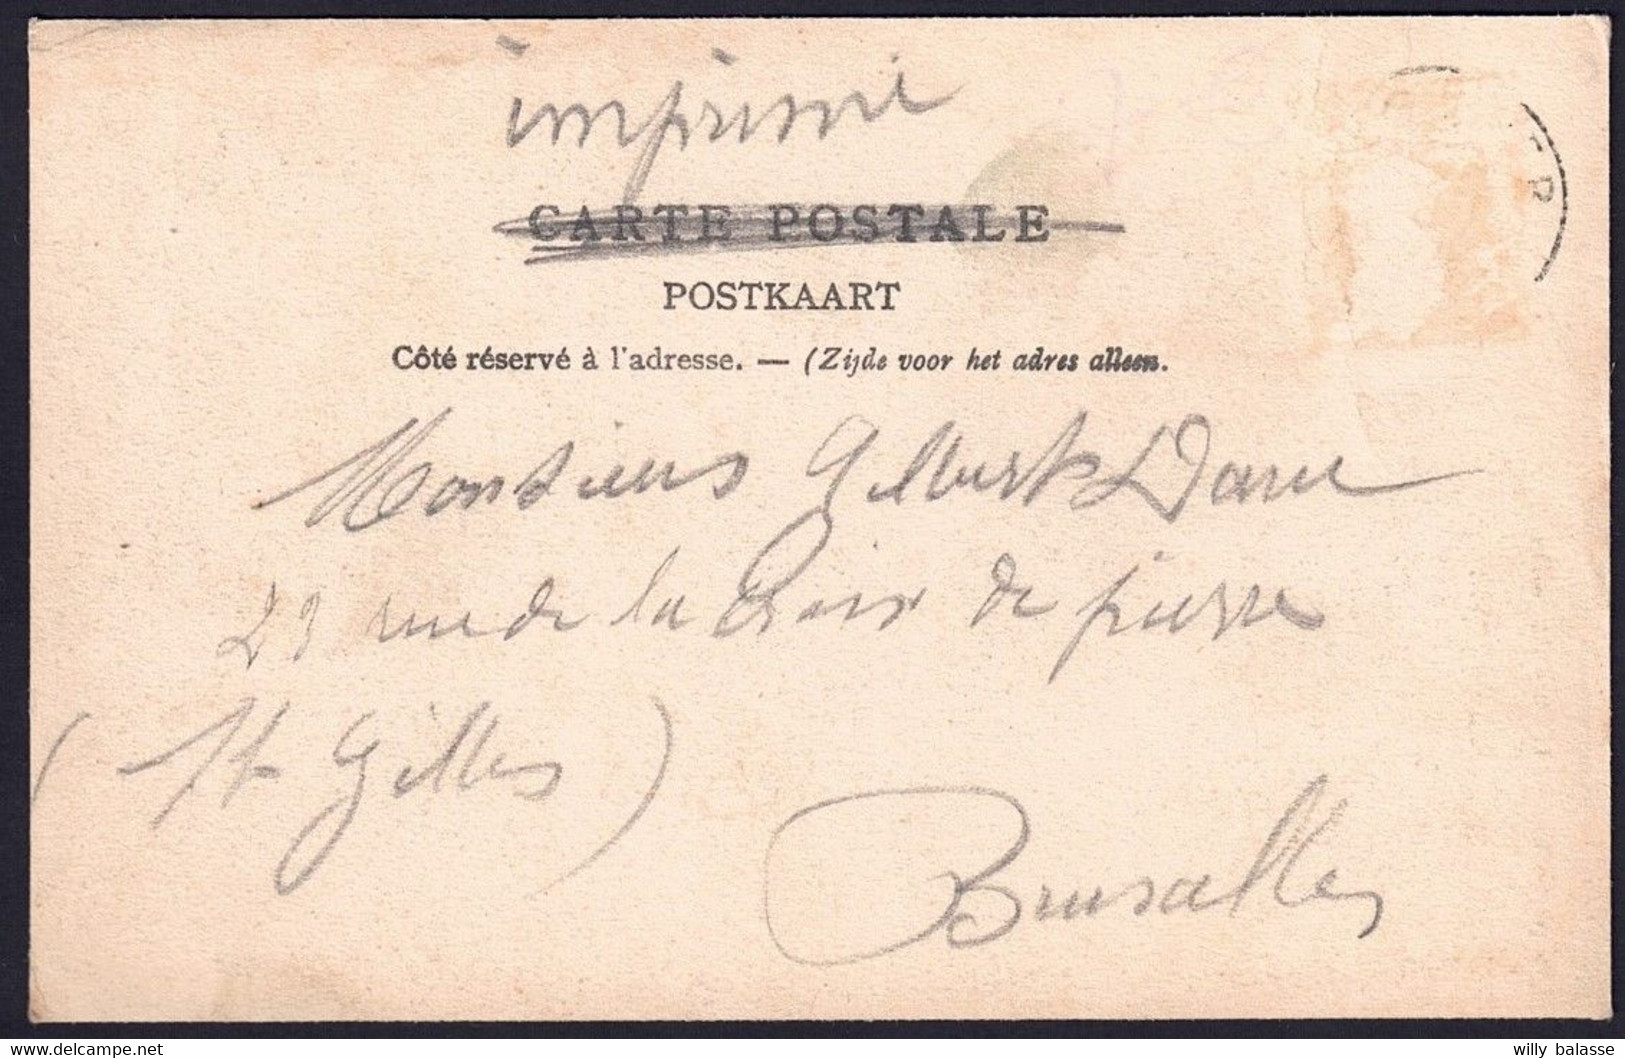 imprimé
CARTE POSTALE
POSTKAART
Côté réservé à l'adresse. — (Zijde voor het adres alleen.
Monsieur Gilbert
23 rue de la Croix de pierre
(St Gilles)
Bruxelles
willy balasse